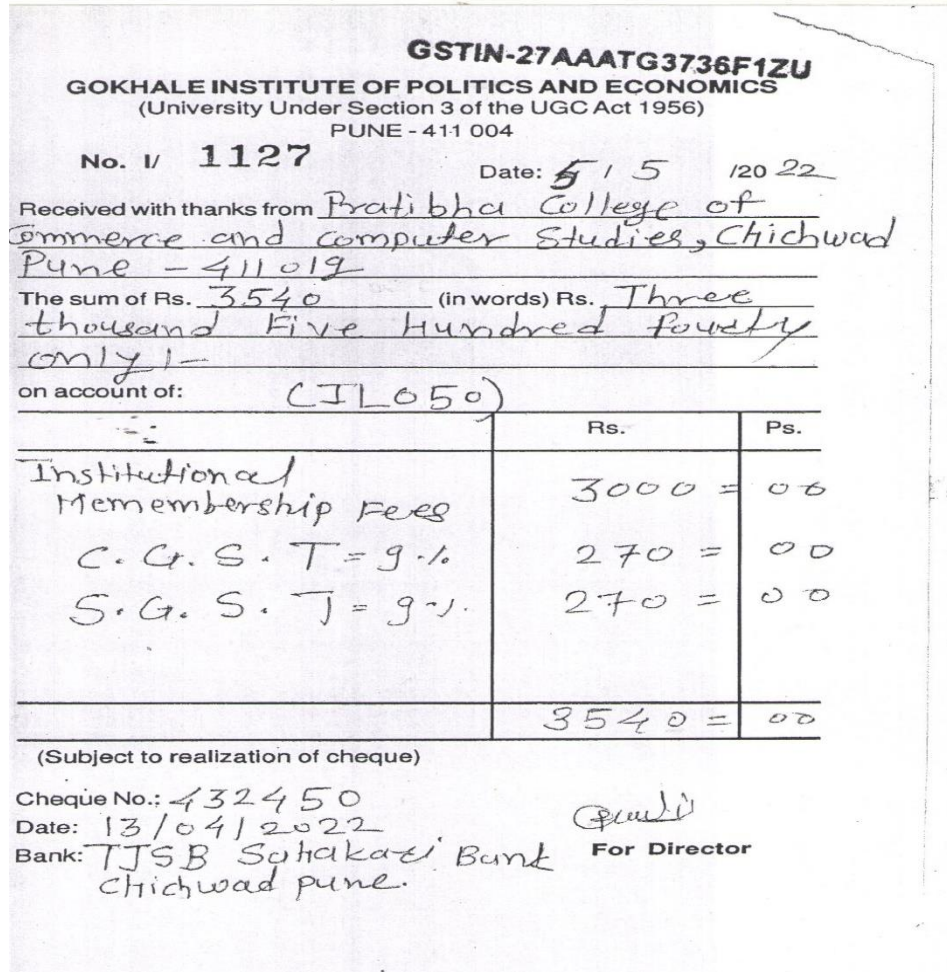 GSTIN-27AAATG3736F1ZU
GOKHALE INSTITUTE OF POLITICS AND ECONOMICS
(University Under Section 3 of the UGC Act 1956)
PUNE - 411 004
No. I/ 1127
Date: 5 / 5 /20 22
Received with thanks from Pratibha College of
Commerce and computer Studies, Chichwad
Pune - 411019
The sum of Rs. 3540 (in words) Rs. Three
thousand Five Hundred fourty
only /-
on account of: (IL050)
Rs. Ps.
Institutional
Memembership Fees 3000 = 00
C. G. S. T = 9 % 270 = 00
S. G. S. T = 9 % 270 = 00
3540 = 00
(Subject to realization of cheque)
Cheque No.: 432450
Date: 13/04/2022
Bank: TJSB Sahakari Bank
For Director
Chichwad pune.